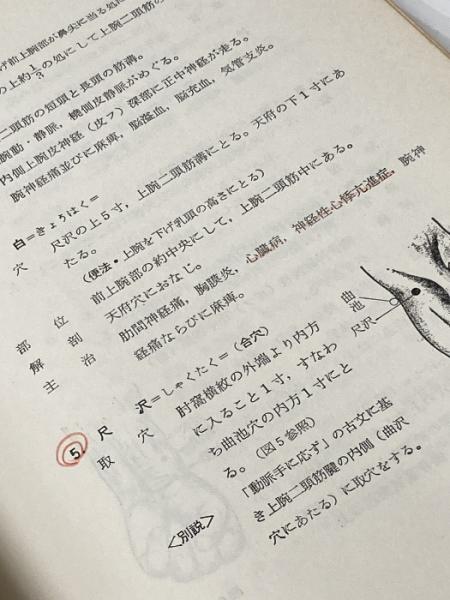 げ前上腕部が鼻尖に当る処に
の上約1/3の処にして上腕二頭筋の
二頭筋の短頭と長頭の筋溝。
腕動・静脈，橈側皮静脈がめぐる。
内側上腕皮神経（皮フ）深部に正中神経が走る。
腕神経痛並びに麻痺，脳溢血，脳充血，気管支炎。
白＝きょうはく＝
穴 尺沢の上5寸，上腕二頭筋溝にとる。天府の下1寸にあ
たる。
（便法・上腕を下げ乳頭の高さにとる）
部位 前上腕部の約中央にして，上腕二頭筋中にある。
解剖 天府穴におなじ。
主治 肋間神経痛，胸膜炎，心臓病，神経性心悸亢進症，腕神
経痛ならびに麻痺。
5. 尺沢＝しゃくたく＝（合穴）
取穴 肘窩横紋の外端より内方
に入ること1寸，すなわ
ち曲池穴の内方1寸にと
る。（図5参照）
＜別説＞ 「動脈手に応ず」の古文に基
き上腕二頭筋腱の内側（曲沢
穴にあたる）に取穴をする。
曲池
尺沢